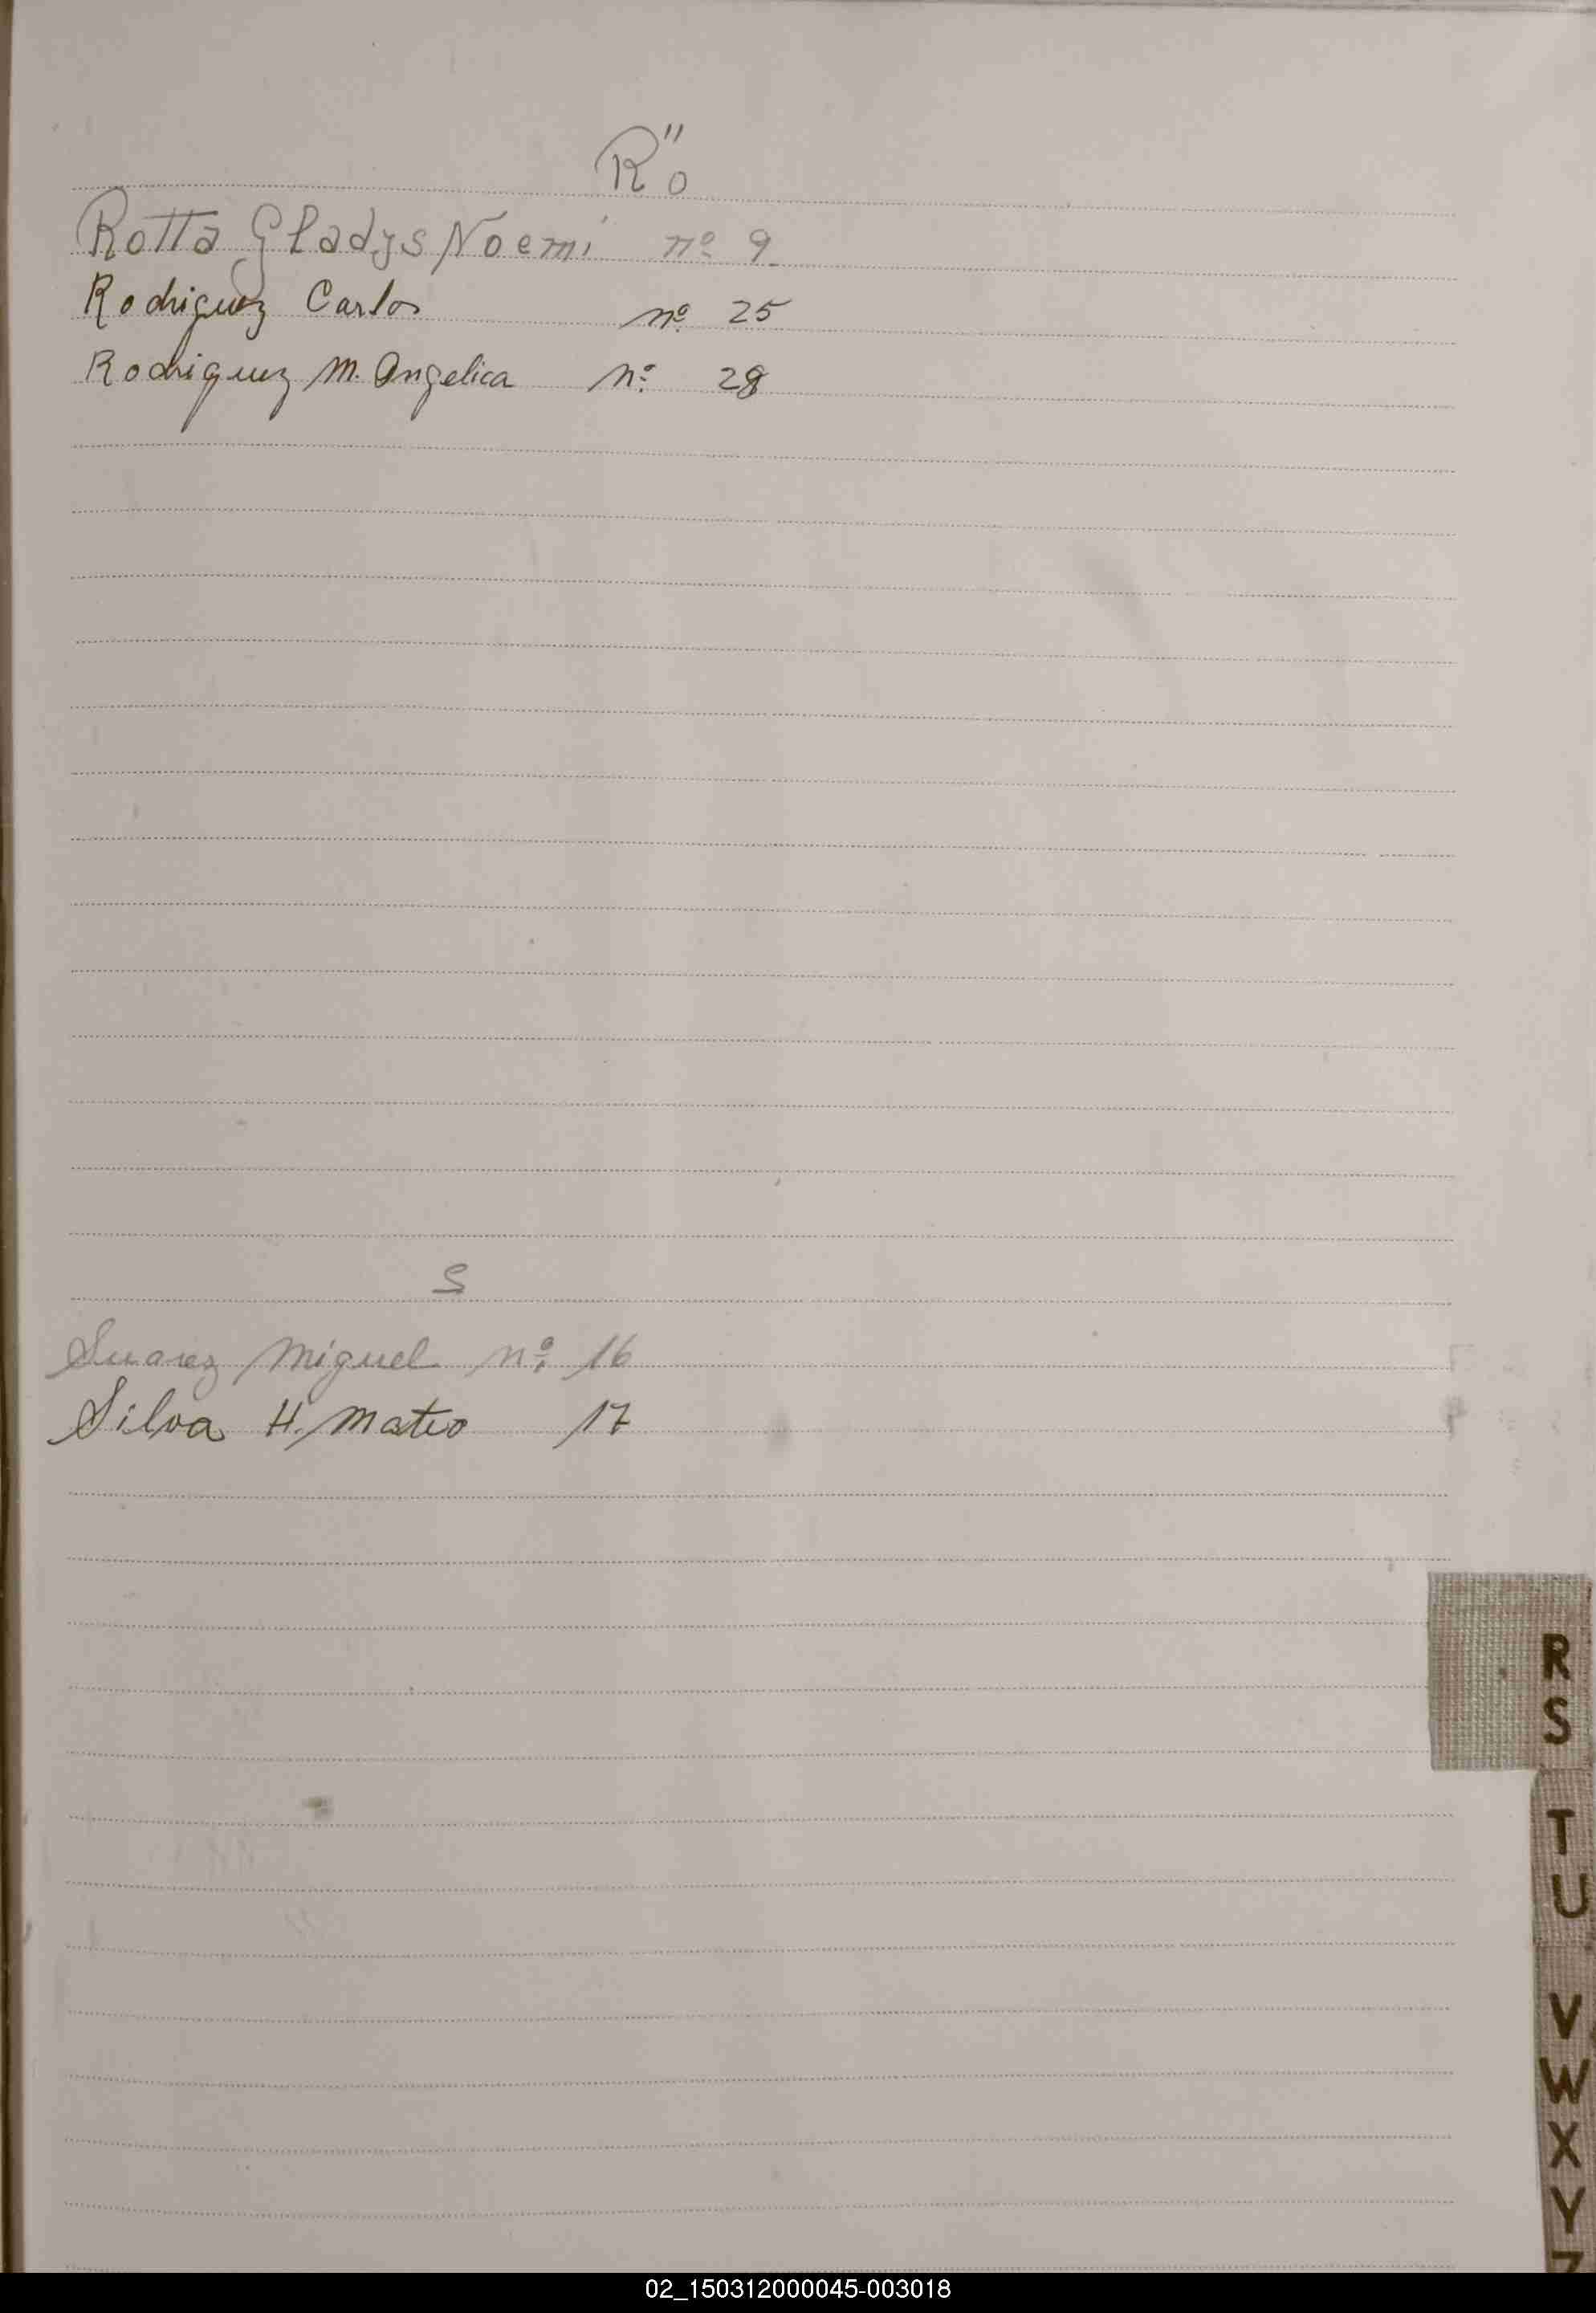 R"o
Rotta Gladys Noemí nº 9
Rodriguez Carlos nº 25
Rodriguez M. Angelica nº 28
S
Suarez Miguel nº 16
Silva H. Mateo 17
R
S
T
U
V
W
X
Y
Z
02_150312000045-003018